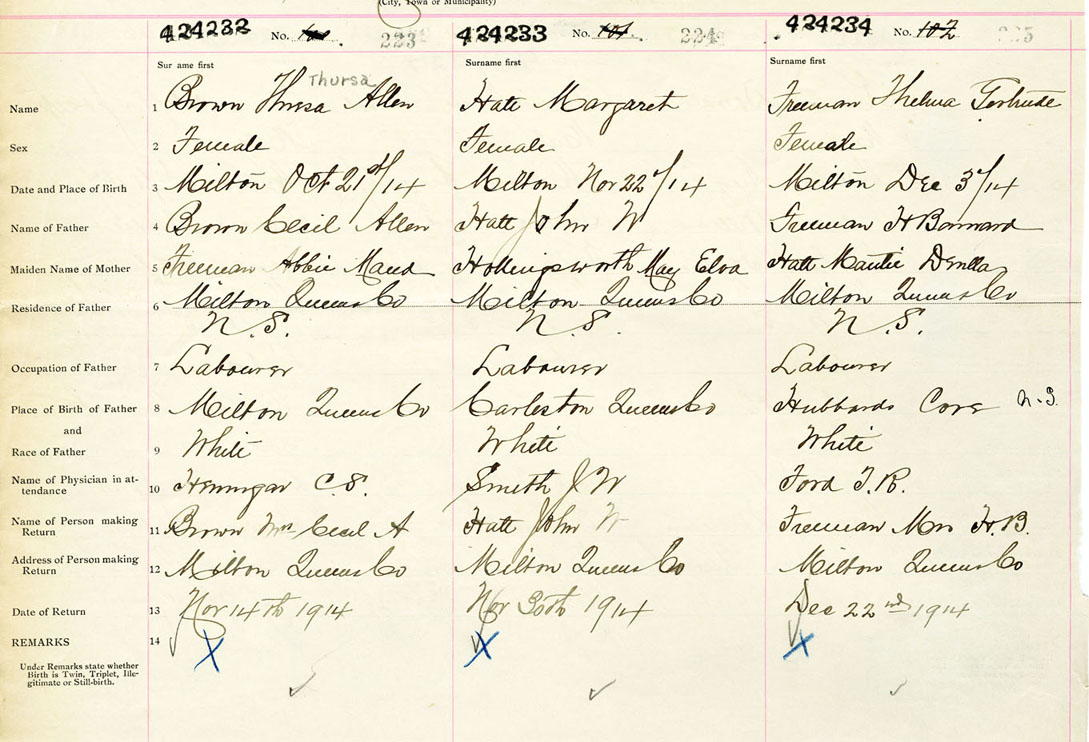 (City, Town or Municipality)
424232 No. 223 424233 No. 101. 224 424234 No. 102 225
Surname first Surname first Surname first
Thursa
Name 1 Brown Thresa Allen Hatt Margaret Freeman Thelma Gertrude
Sex 2 Female Female Female
Date and Place of Birth 3 Milton Oct 21st/14 Milton Nov 22/14 Milton Dec 3/14
Name of Father 4 Brown Cecil Allen Hatt John W Freeman H Barnard
Maiden Name of Mother 5 Freeman Abbie Maud Hollingsworth May Elva Hatt
Residence of Father 6 Milton Queens Co Milton Queens Co Milton Queens Co
N.S. N.S. N.S.
Occupation of Father 7 Labourer Labourer Labourer
Place of Birth of Father 8 Milton Queens Co Carleston Queens Co Hubbards Cove N.S.
and
Race of Father 9 White White White
Name of Physician in at-
tendance 10 Hennigar C.S. Smith J W Ford T.R.
Name of Person making
Return 11 Brown Mrs Cecil A Hatt John W Freeman Mrs H.B.
Address of Person making
Return 12 Milton Queens Co Milton Queens Co Milton Queens Co
Date of Return 13 Nov 14th 1914 Nov 30th 1914 Dec 22nd 1914
REMARKS 14 X X X
Under Remarks state whether
Birth is Twin, Triplet, Ille-
gitimate or Still-birth.